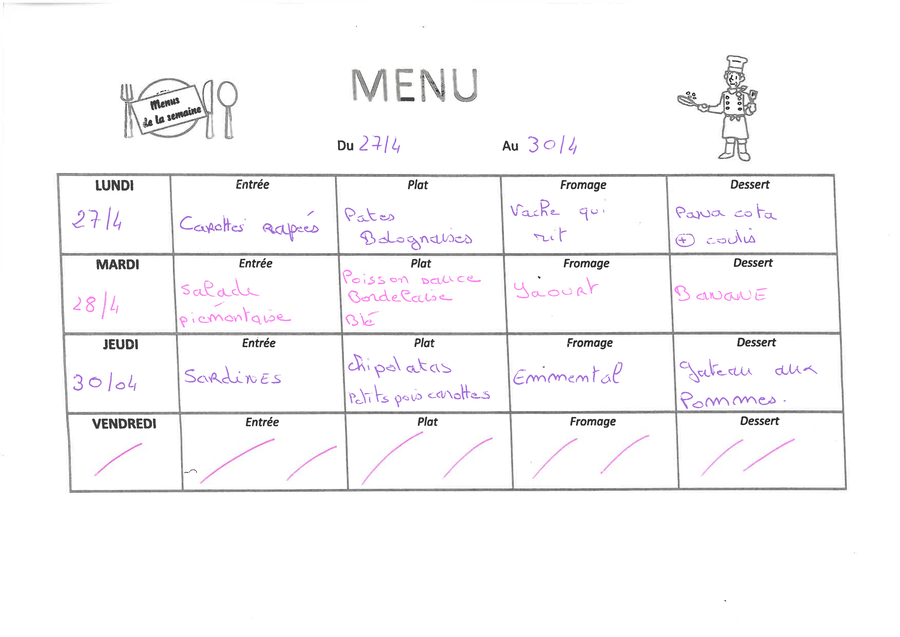 Menus
de la semaine
MENU
Du 27/4 Au 30/4
LUNDI Entrée Plat Fromage Dessert
27/4 Carottes rapées Pates Bolognaises Vache qui rit Pana cota + coulis
MARDI Entrée Plat Fromage Dessert
28/4 Salade piémontaise Poisson sauce Bordelaise Blé Yaourt BANANE
JEUDI Entrée Plat Fromage Dessert
30/04 SARDINES Chipolatas Petits pois carottes Emmental Gateau aux Pommes.
VENDREDI Entrée Plat Fromage Dessert